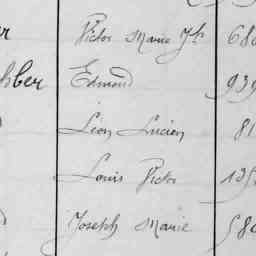 Victor Marie Jh 680
hber Edmond 939
Léon Lucien 81
Louis Victor 135
Joseph Marie 580